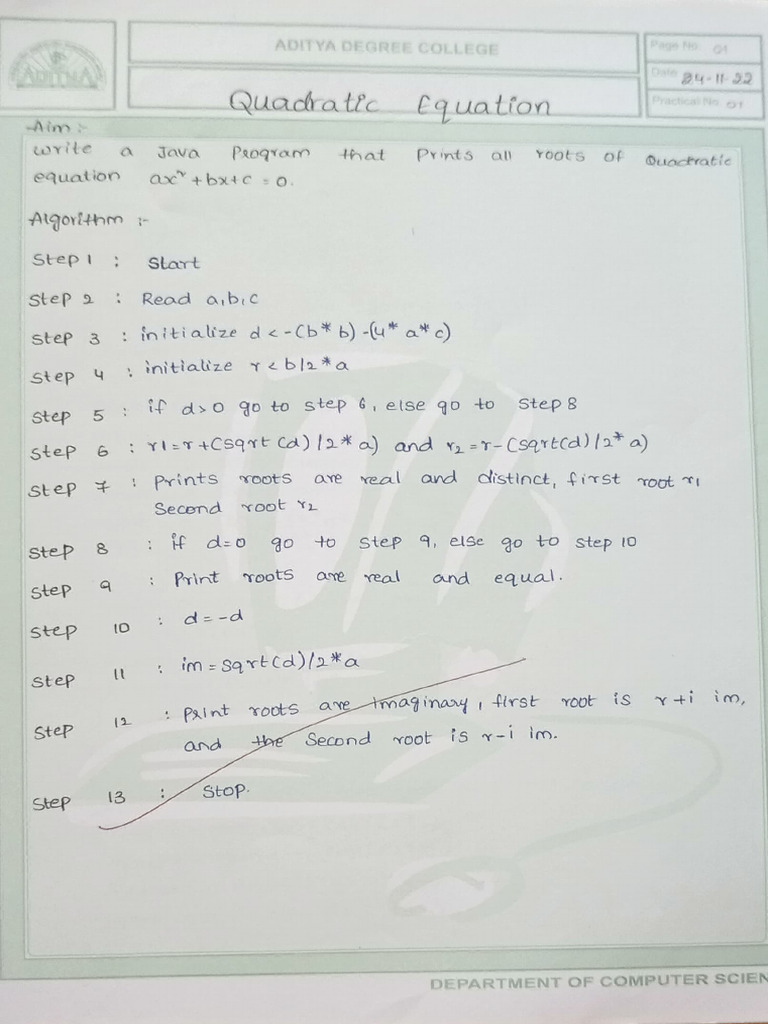 ADITYA DEGREE COLLEGE
Page No. 01
ADITYA
Date 24-11-22
Quadratic Equation
Practical No. 01
Aim :-
write a Java Program that Prints all roots of Quadratic
equation ax² + bx + c = 0.
Algorithm :-
Step 1 : Start
Step 2 : Read a,b,c
Step 3 : initialize d <-(b* b) -(4* a*c)
Step 4 : initialize r < b/2*a
Step 5 : if d>0 go to step 6, else go to Step 8
Step 6 : r1=r+(sqrt(d)/2*a) and r2=r-(sqrt(d)/2*a)
Step 7 : Prints roots are real and distinct, first root r1
Second root r2
Step 8 : if d=0 go to step 9, else go to step 10
Step 9 : Print roots are real and equal.
Step 10 : d = -d
Step 11 : im = sqrt(d)/2*a
Step 12 : Print roots are Imaginary, first root is r+i im,
and the Second root is r-i im.
Step 13 : Stop.
DEPARTMENT OF COMPUTER SCIEN